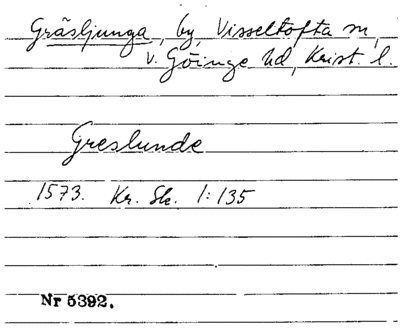 Gräsljunga, by, Visseltofta sn,
V. Göinge hd, Krist. l.
Greslunde
1573. Kr. Sk. 1:135
Nr 5392.